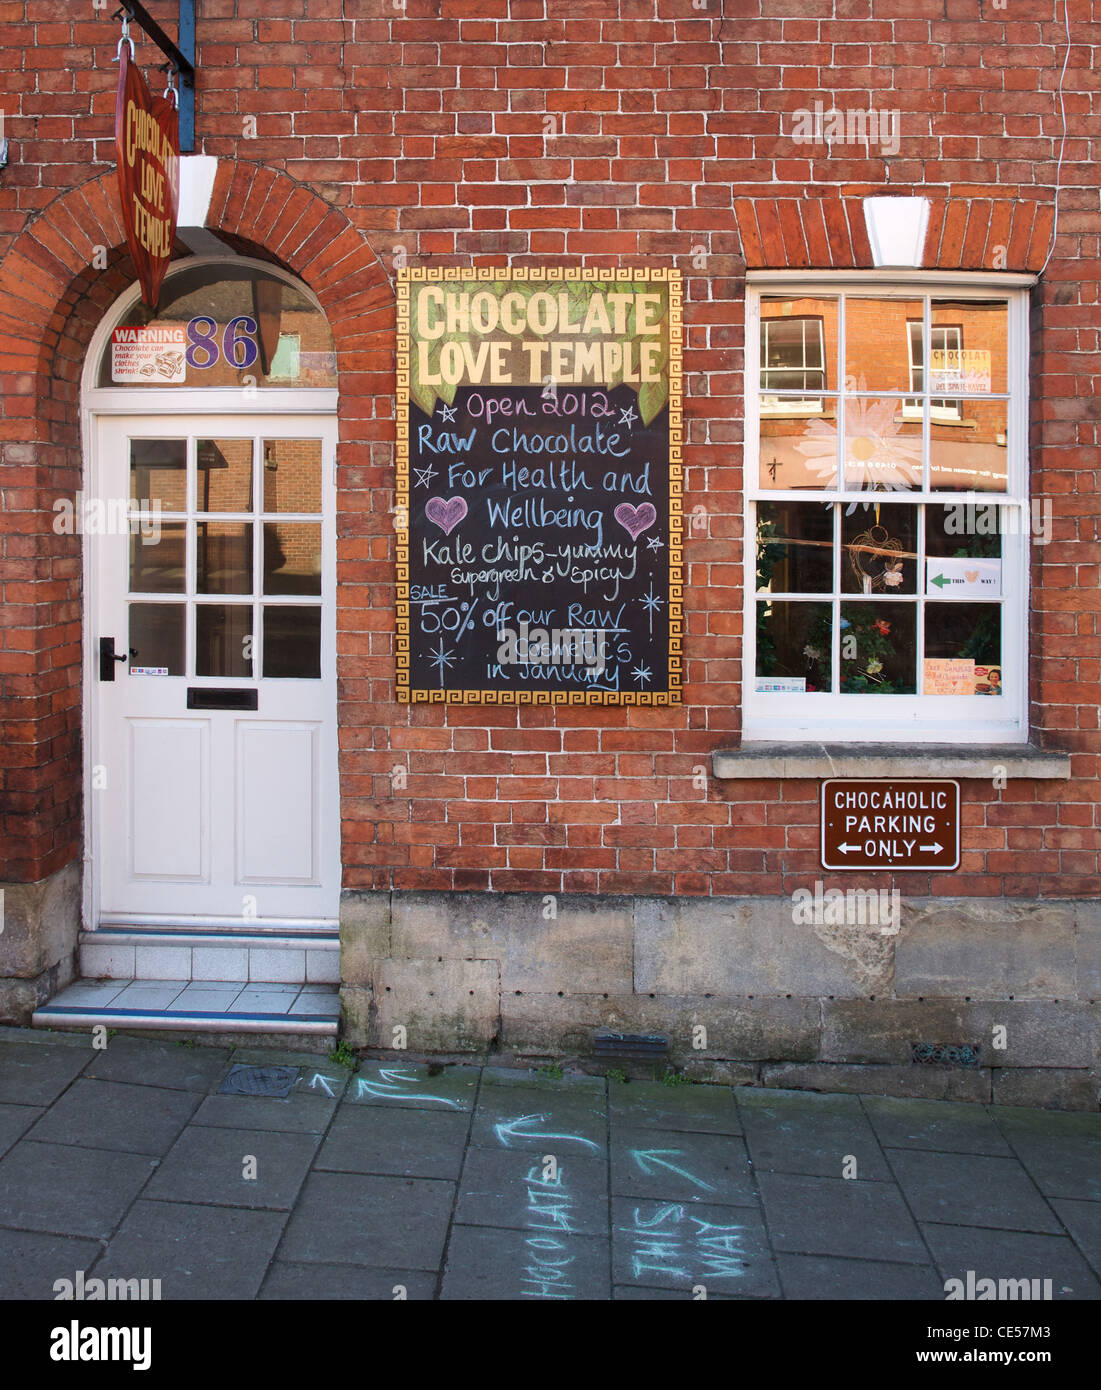 CHOCOLATE
LOVE
TEMPLE
WARNING
Chocolate can
make your
clothes
shrink!
86
CHOCOLATE
LOVE TEMPLE
Open 2012
Raw Chocolate
For Health and
Wellbeing
Kale chips-yummy
Supergreen & Spicy
SALE
50% off our Raw
Cosmetics
in January
CHOCOLAT
THIS WAY!
CHOCAHOLIC
PARKING
ONLY
HOCOLATE
THIS
WAY
alamy
alamy stock photo
CE57M3
www.alamy.com